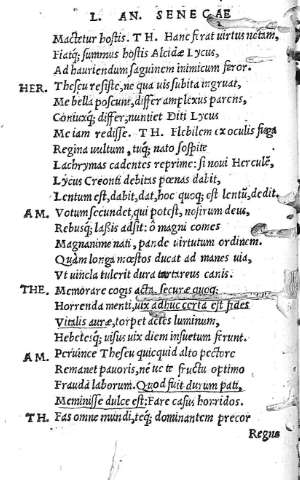 L. AN. SENECAE
Mactetur hostis. TH. Hanc ferat virtus notam,
Fiatq; summus hostis Alcidæ Lycus,
Ad hauriendum sanguinem inimicum feror.
HER. Theseu resiste, ne qua vis subita ingruat,
Me bella poscunt, differ amplexus parens,
Coniuxq; differ, nuntiet Diti Lycus
Me iam redisse. TH. Flebilem ex oculis fuga
Regina uultum, tuq; nato sospite
Lachrymas cadentes reprime: si noui Herculē,
Lycus Creonti debitas pœnas dabit,
Lentum est, dabit, dat, hoc quoq; est lentū, dedit.
AM. Votum secundet, qui potest, nostrum deus,
Rebusq; lassis adsit: ô magni comes
Magnanime nati, pande uirtutum ordinem.
Quàm longa mœstos ducat ad manes uia,
Vt uincla tulerit dura tartareus canis.
THE. Memorare cogis acta, securæ quoq;
Horrenda menti, uix adhuc certa est fides
Vitalis auræ, torpet acies luminum,
Hebetesq; uisus uix diem insuetum ferunt.
AM. Peruince Theseu quicquid alto pectore
Remanet pauoris, né ue te fructu optimo
Frauda laborum. Quod fuit durum pati,
Meminisse dulce est: Fare casus horridos.
TH. Fas omne mundi, teq; dominantem precor
Regno